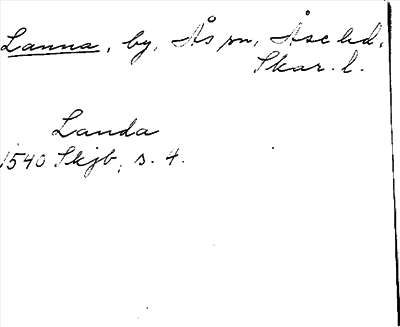 Lanna, by, Ås sn, Åse hd,
Skar. l.
Landa
1540 Skjb, s. 4.